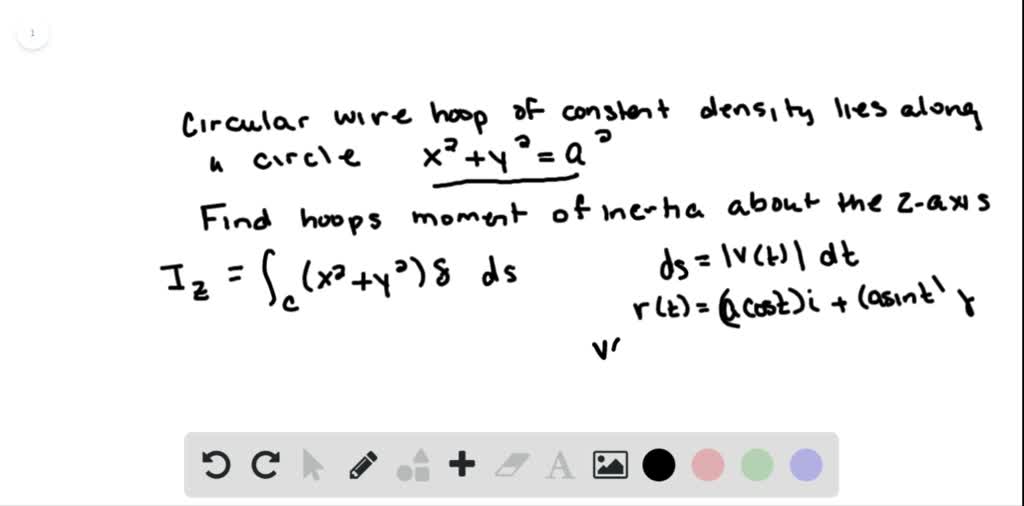 1
Circular wire hoop of constent density lies along
a circle x² + y² = a²
Find hoops moment of inertia about the z-axis
I_z = ∫_c (x² + y²) δ ds
ds = |v(t)| dt
r(t) = (a cost)i + (asint) j
v(
A